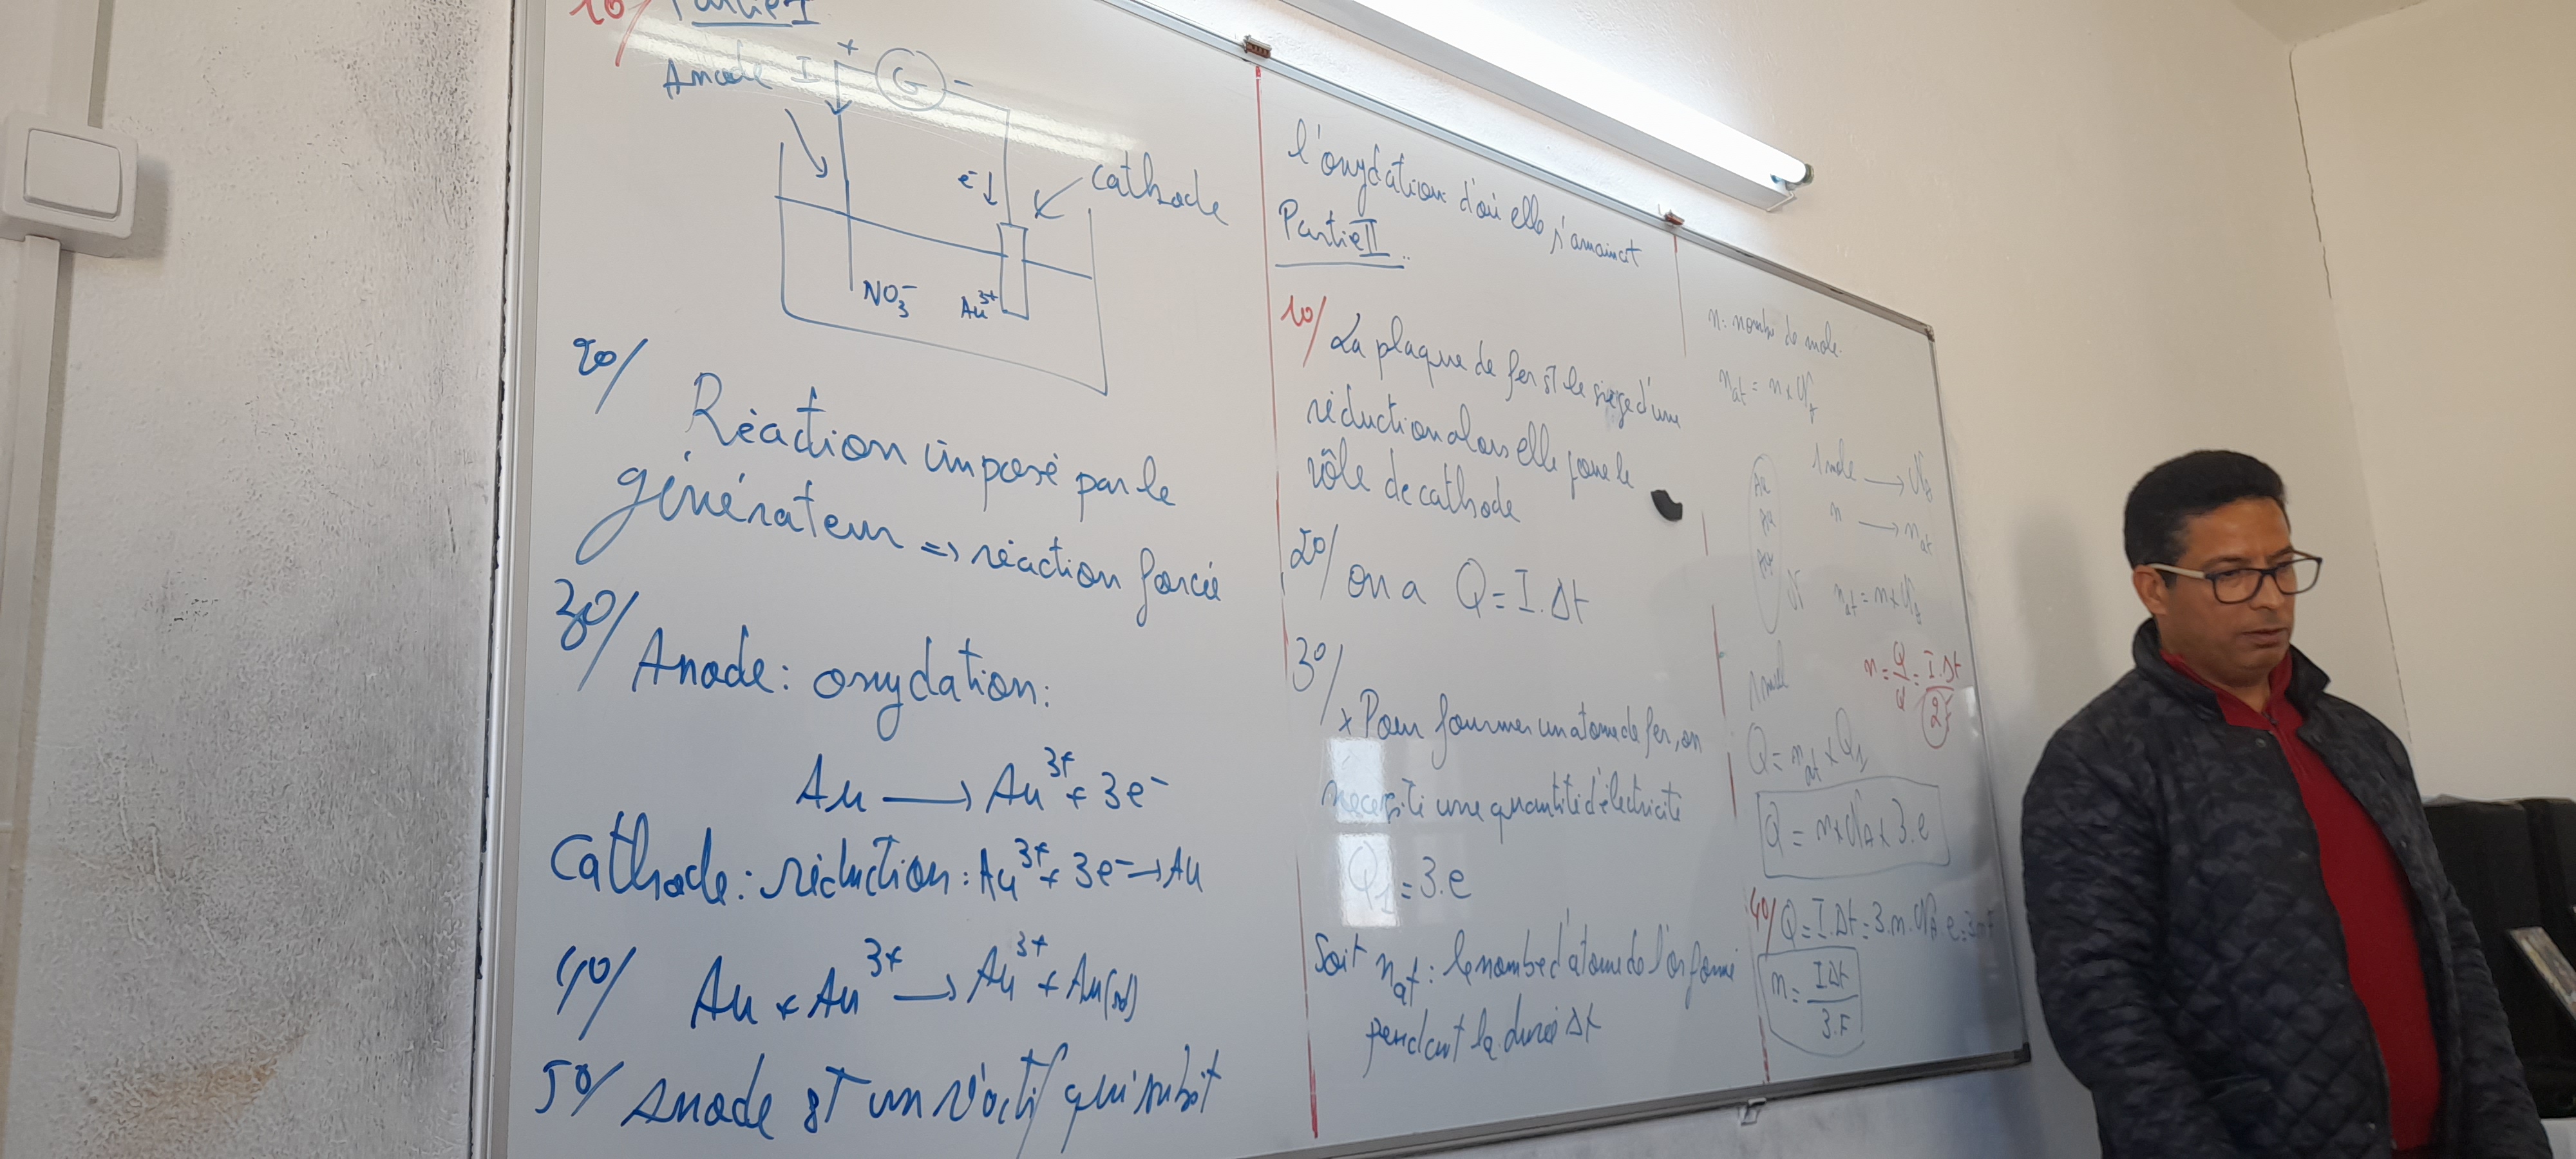 10/ Partie I
Anode I + G -
e- cathode
NO3- Au3+
20/
Réaction imposé par le
générateur => réaction forcée
30/ Anode : oxydation :
Au → Au3+ + 3e-
Cathode : réduction : Au3+ + 3e- → Au
40/ Au + Au3+ → Au3+ + Au(sd)
50/ Anode est un réactif qui subit
l'oxydation d'où elle s'amaincit
Partie II
10/ La plaque de fer est le siège d'une
réduction alors elle joue le
rôle de cathode
20/ on a Q = I.Δt
30/
* Pour fourmer un atome de fer, on
necessite une quantité d'électricité
Q1 = 3.e
Soit nat : le nombre d'atome de l'or formé
pendant la durée Δt
n : nombre de mole.
nat = n x NA
1mole → NA
n → nat
Au
Au
Au
nat = n x NA
1 mole
n = Q/q = I.Δt/2F
Q = nat x Q1
Q = n x NA x 3.e
40/ Q = I.Δt = 3.n.NA.e = 3nF
n = IΔt/3.F